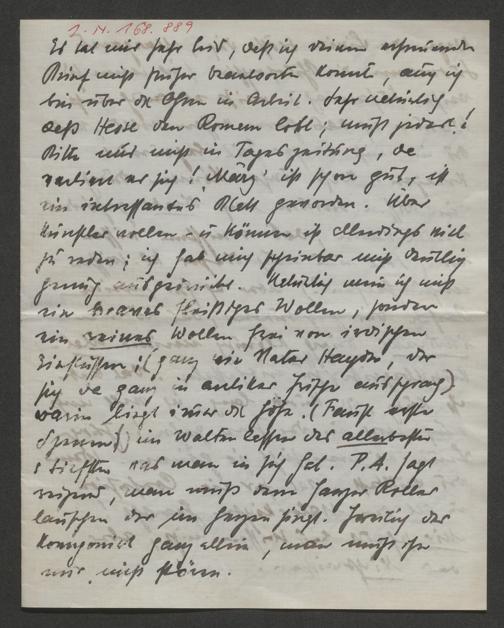 I. N. 168.889
Es tut mir sehr leid, daß ich deinen erfreuenden
Brief nicht früher beantworten konnte, aber ich
bin über die Ohren in Arbeit. Sehr natürlich
daß Hesse den Roman lobt; nicht jeder!
Bitte nur nicht in Tageszeitung, da
verliert er sich! "März" ist schon gut, ist
ein interessantes Blatt geworden. Über
Künstler wollen u können ist allerdings viel
zu reden; ich hab mich scheinbar nicht deutlich
genug ausgedrückt. Natürlich mein ich nicht
ein braves fleißiges Wollen, sondern
ein reines Wollen frei von irdischen
Einflüssen; (ganz wie Vater Haydn, der
sich da ganz in antiker Frische aussprang)
darin liegt immer die Höhe. (Faust erste
Szenen!) im Walten lassen des allerbesten
u tiefsten was man in sich hat. P. A. sagt
reizend, man muß dem Harzer Roller
lauschen der im Herzen singt. Freilich der
komponirt ganz allein, man muß ihn
nur nicht stören.